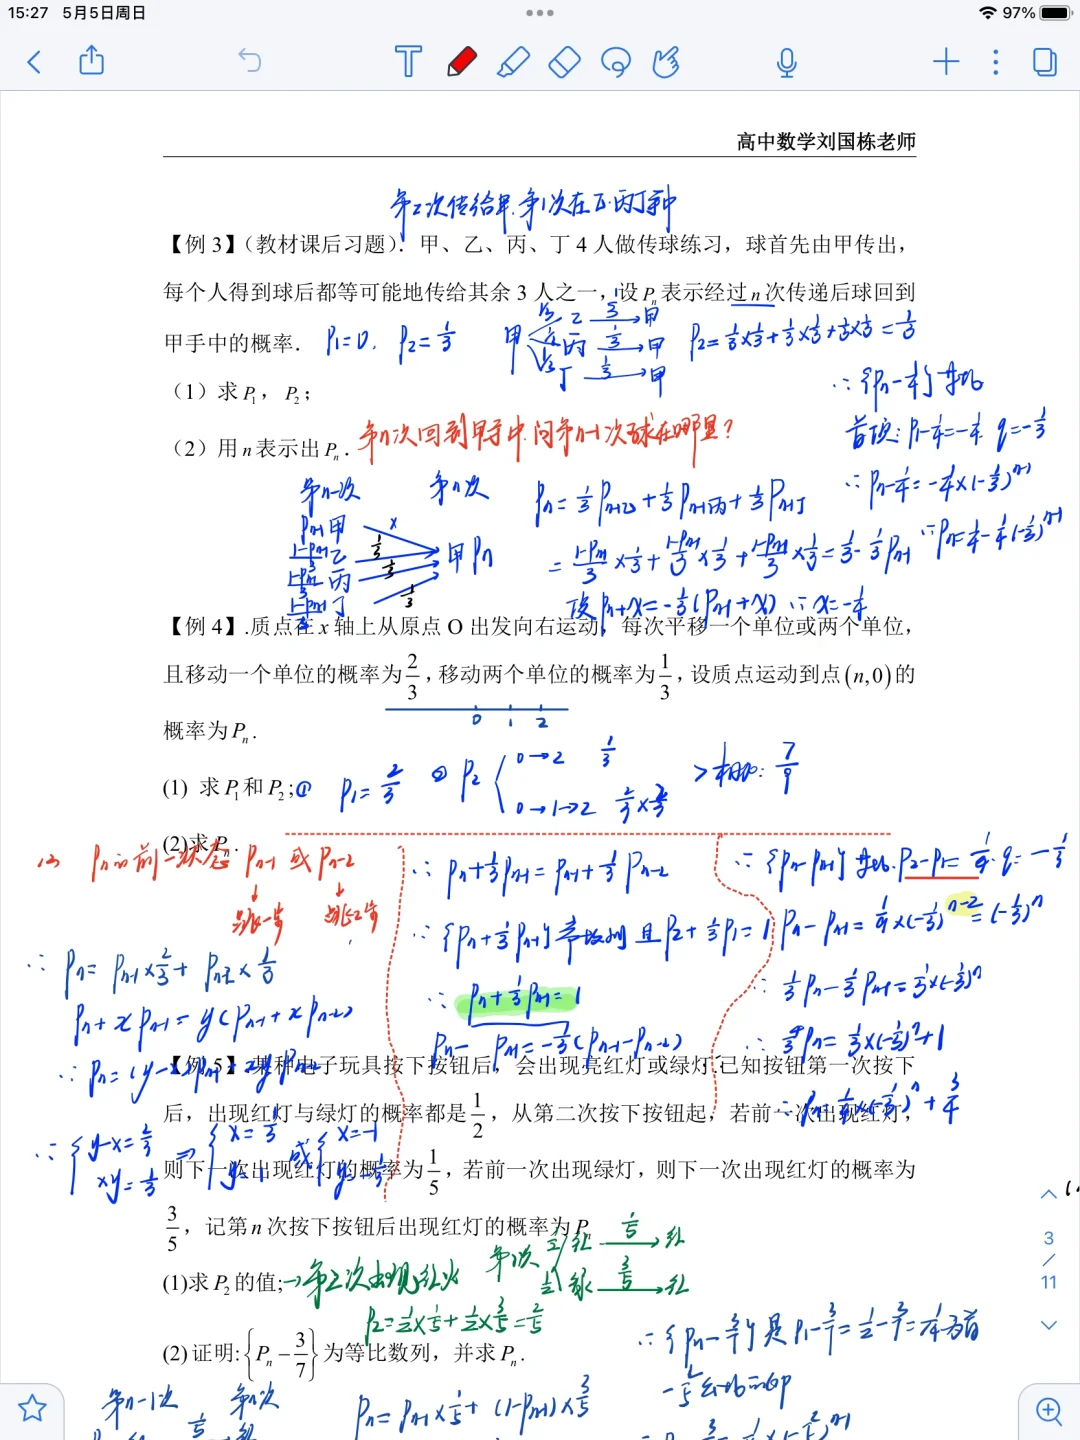 15:27 5月5日周日
97%
高中数学刘国栋老师
第2次传给甲,第1次在乙、丙、丁手中
【例 3】(教材课后习题). 甲、乙、丙、丁 4 人做传球练习，球首先由甲传出，
每个人得到球后都等可能地传给其余 3 人之一，设 Pn 表示经过 n 次传递后球回到
甲手中的概率.
P1=0, P2=1/3
甲 1/3 乙 1/3 → 甲
1/3 丙 1/3 → 甲
1/3 丁 1/3 → 甲
P2=1/3×1/3+1/3×1/3+1/3×1/3=1/3
（1）求 P1，P2；
∴{Pn-1/4}等比
首项:P1-1/4=-1/4 q=-1/3
∴Pn-1/4=-1/4×(-1/3)^(n-1)
∴Pn=1/4-1/4(-1/3)^(n-1)
（2）用 n 表示出 Pn.
第n次回到甲手中,问第n-1次球在哪里?
第n-1次 第n次
Pn-1 甲 ×
(1-Pn-1)/3 乙 1/3
(1-Pn-1)/3 丙 1/3
(1-Pn-1)/3 丁 1/3
甲 Pn
Pn=1/3Pn-1乙+1/3Pn-1丙+1/3Pn-1丁
=(1-Pn-1)/3×1/3+(1-Pn-1)/3×1/3+(1-Pn-1)/3×1/3=1/3-1/3Pn-1
设Pn+x=-1/3(Pn-1+x) ∴x=-1/4
【例 4】.质点在 x 轴上从原点 O 出发向右运动，每次平移一个单位或两个单位，
且移动一个单位的概率为2/3,移动两个单位的概率为1/3,设质点运动到点(n,0)的
0 1 2
概率为 Pn.
(1) 求 P1和 P2;
① P1=2/3 ② P2
0→2 1/3
0→1→2 2/3×2/3
>相加:7/9
(2)求 Pn.
(2) Pn的前一状态 Pn-1 或 Pn-2
↓ ↓
跳一步 跳2步
∴Pn=Pn-1×2/3+Pn-2×1/3
Pn+xPn-1=y(Pn-1+xPn-2)
∴Pn=(y-x)Pn-1+xyPn-2
∴{y-x=2/3 xy=1/3 ⇒{x=1/3 y=1 或{x=-1 y=-1/3
∴Pn+1/3Pn-1=Pn-1+1/3Pn-2
∴{Pn+1/3Pn-1}常数列且P2+1/3P1=1
∴Pn+1/3Pn-1=1
Pn-Pn-1=-1/3(Pn-1-Pn-2)
∴{Pn-Pn-1}等比.P2-P1=1/9.q=-1/3
Pn-Pn-1=1/9×(-1/3)^(n-2)=(-1/3)^n
∴1/3Pn-1/3Pn-1=1/3×(-1/3)^n
∴4/3Pn=1/3×(-1/3)^n+1
∴Pn=1/4×(-1/3)^n+3/4
【例 5】某种电子玩具按下按钮后，会出现亮红灯或绿灯,已知按钮第一次按下
后，出现红灯与绿灯的概率都是1/2，从第二次按下按钮起，若前一次出现红灯，
则下一次出现红灯的概率为1/5,若前一次出现绿灯，则下一次出现红灯的概率为
3/5，记第 n 次按下按钮后出现红灯的概率为 Pn
(1)求 P2 的值;
→第2次出现红火
第1次 1/2 红 1/5 → 红
1/2 绿 3/5 → 红
P2=1/2×1/5+1/2×3/5=2/5
(2) 证明:{Pn-3/7}为等比数列，并求 Pn.
∴{Pn-3/7}是P1-3/7=1/2-3/7=1/14为首
第n-1次 第n次
Pn=Pn-1×1/5+(1-Pn-1)×3/5
3
/
11